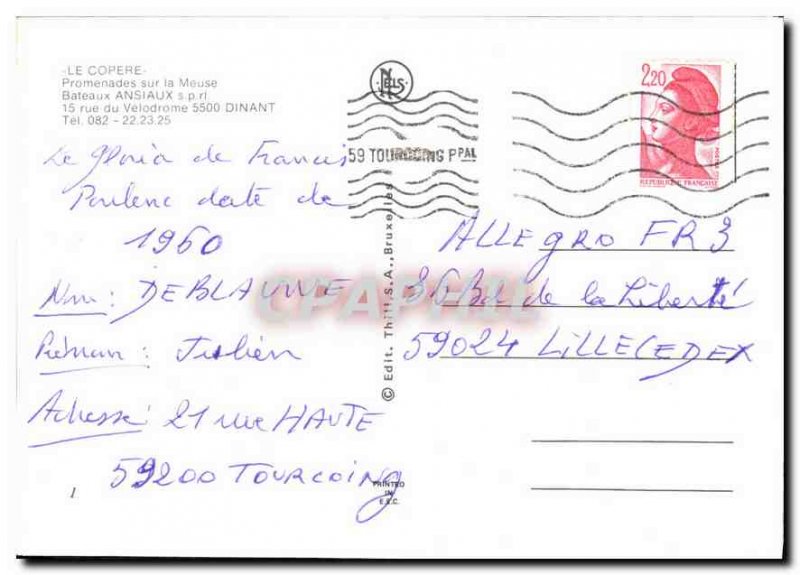 -LE COPERE-
Promenades sur la Meuse
Bateaux ANSIAUX s.p.r.l
15 rue du Velodrome 5500 DINANT
Tél. 082 - 22.23.25
NELS
59 TOURCOING PPAL
2,20
POSTES
REPUBLIQUE FRANÇAISE
Le Gloria de Francis
Poulenc date de
1960
Nom : DEBLAUWE
Prénom : Julien
Adresse : 21 rue HAUTE
59200 TOURCOING
1
© Edit. Thill S.A., Bruxelles
ALLEGRO FR3
36 Bd de la Liberté
59024 LILLE CEDEX
PRINTED
IN
E.E.C.
CPAPHIL